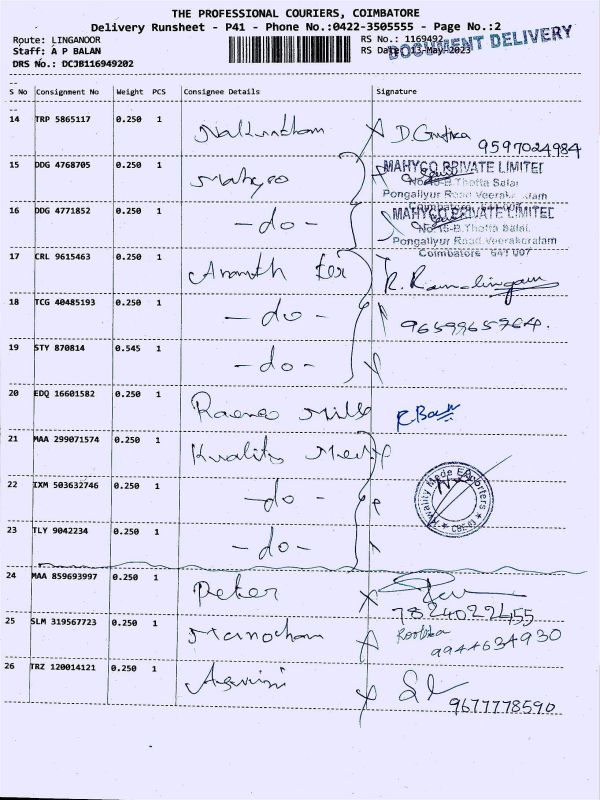 THE PROFESSIONAL COURIERS, COIMBATORE
Delivery Runsheet - P41 - Phone No.:0422-3505555 - Page No.:2
Route: LINGANOOR
RS No.: 1169492
Staff: A P BALAN
RS Date: 13-May-2023
DOCUMENT DELIVERY
DRS No.: DCJB116949202
S No Consignment No Weight PCS Consignee Details Signature
14 TRP 5865117 0.250 1
9597024984
15 DDG 4768705 0.250 1 Mahyco
MAHYCO PRIVATE LIMITED
No 15-B Thotta Salai
Pongaliyur Road Veerakeralam
16 DDG 4771852 0.250 1 -do-
MAHYCO PRIVATE LIMITED
No 15-B Thotta Salai,
Pongaliyur Road Veerakeralam
Coimbatore 641 007
17 CRL 9615463 0.250 1 R. Ramalingam
18 TCG 40485193 0.250 1 -do-
19 STY 870814 0.545 1 -do-
20 EDQ 16601582 0.250 1 Mills
21 MAA 299071574 0.250 1 Kwality
22 IXM 503632746 0.250 1 -do-
Kwality Mede Exporters
CBE-03
23 TLY 9042234 0.250 1 -do-
24 MAA 859693997 0.250 1 Peter
7824022455
25 SLM 319567723 0.250 1 Manocham
9944634930
26 TRZ 120014121 0.250 1
9677778590